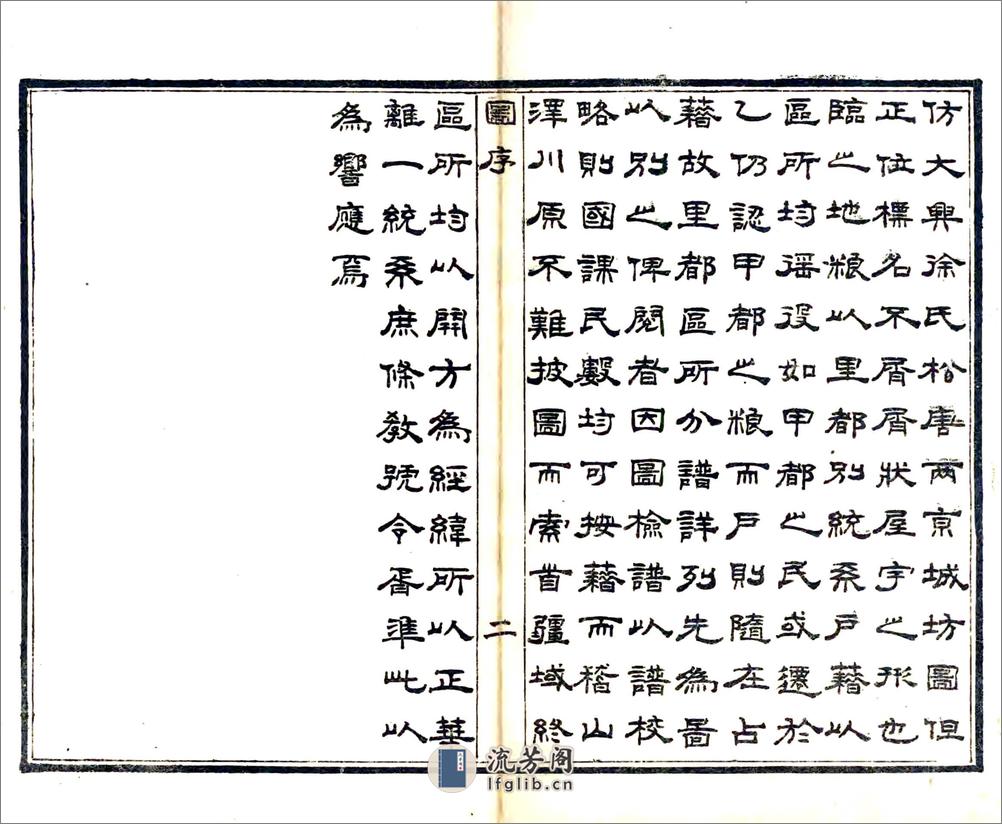 仿大興徐氏松唐兩京城坊圖但
正位標名不屑屑狀屋宇之形也
臨之地粮以里都別統系戶藉以
區所均徭役如甲都之民或遷於
乙仍認甲都之粮而戶則隨在占
藉故里都區所分譜詳列先為啚
以別之俾閱者因圖檢譜以譜校
略則國課民數均可按藉而稽山
澤川原不難披圖而索首疆域終
圖序 二
區所均以開方為經緯所以正華
離一統系庶條教號令胥準此以
為響應焉
流芳阁
lfglib.cn